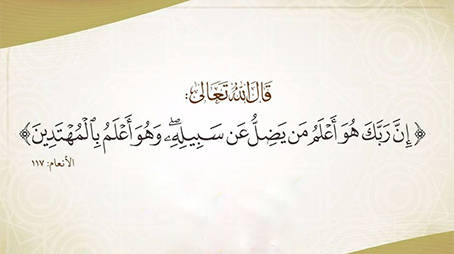 قَالَ اللَّهُ تَعَالَى:
﴿ إِنَّ رَبَّكَ هُوَ أَعْلَمُ مَن يَضِلُّ عَن سَبِيلِهِۦۖ وَهُوَ أَعْلَمُ بِٱلْمُهْتَدِينَ ﴾
الأنعام: ١١٧